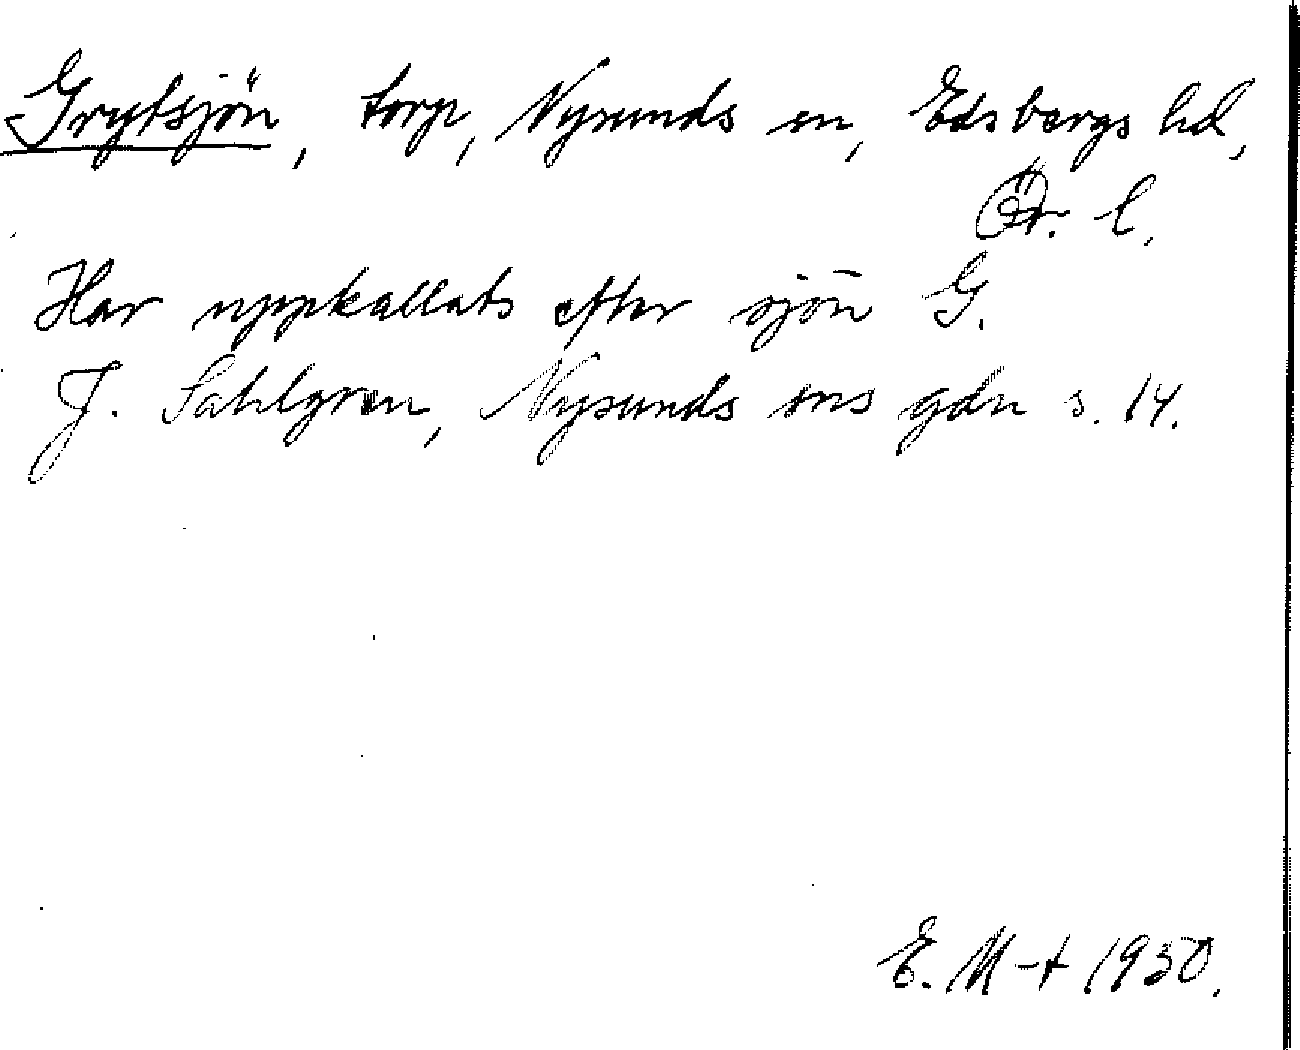 Grytsjön, torp, Nysunds sn, Edsbergs hd,
Ör. l.
Har uppkallats efter sjön G.
J. Sahlgren, Nysunds sns gdn s. 14.
E. M-t 1930.